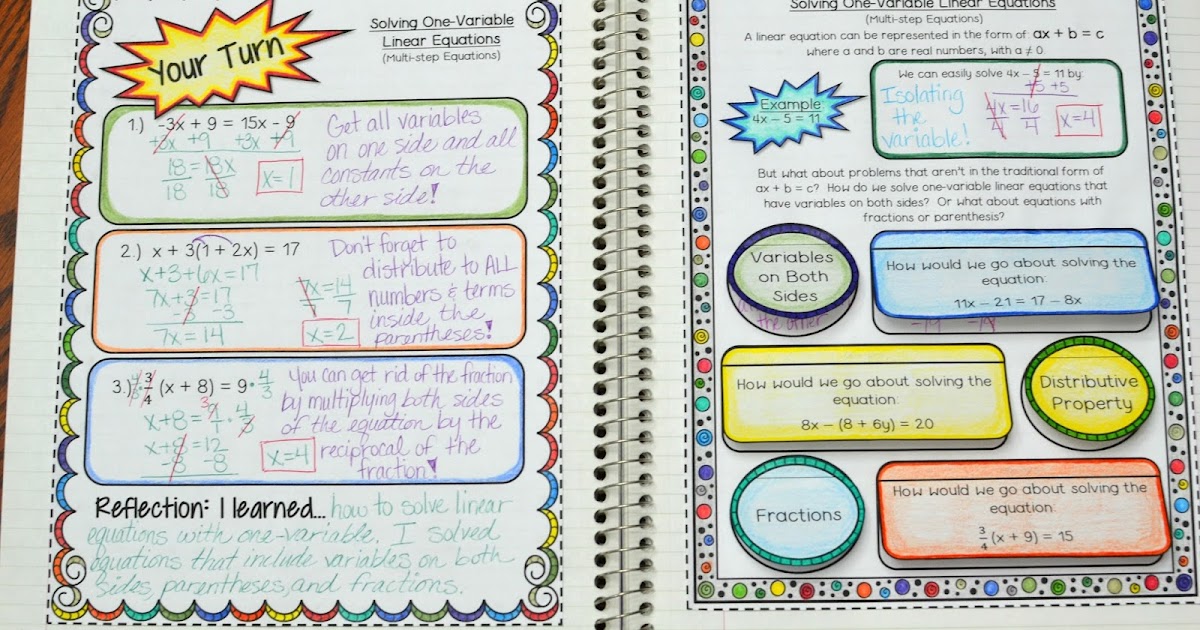 Your Turn
Solving One-Variable
Linear Equations
(Multi-step Equations)
1.) -3x + 9 = 15x - 9
+3x +9 +3x +9
18 = 18x
18 18
x=1
Get all variables
on one side and all
constants on the
other side!
2.) x + 3(1 + 2x) = 17
x+3+6x=17
7x+3=17
-3 -3
7x = 14
7x=14
7 7
x=2
Don't forget to
distribute to ALL
numbers & terms
inside the
parentheses!
3.) 4/3 · 3/4 (x + 8) = 9 · 4/3
x+8 = 9/1 · 4/3
3
x+8=12
-8 -8
x=4
You can get rid of the fraction
by multiplying both sides
of the equation by the
reciprocal of the
fraction!
Reflection: I learned... how to solve linear
equations with one-variable. I solved
equations that include variables on both
sides, parentheses, and fractions.
Solving One-Variable Linear Equations
(Multi-step Equations)
A linear equation can be represented in the form of ax + b = c
where a and b are real numbers, with a ≠ 0.
Example:
4x – 5 = 11
We can easily solve 4x – 5 = 11 by:
+5 +5
Isolating
the
variable!
4x = 16
4 4
x=4
But what about problems that aren't in the traditional form of
ax + b = c? How do we solve one-variable linear equations that
have variables on both sides? Or what about equations with
fractions or parenthesis?
Variables
on Both
Sides
the other
How would we go about solving the
equation:
11x – 21 = 17 – 8x
How would we go about solving the
equation:
8x – (8 + 6y) = 20
Distributive
Property
Fractions
How would we go about solving the
equation:
3/4 (x + 9) = 15